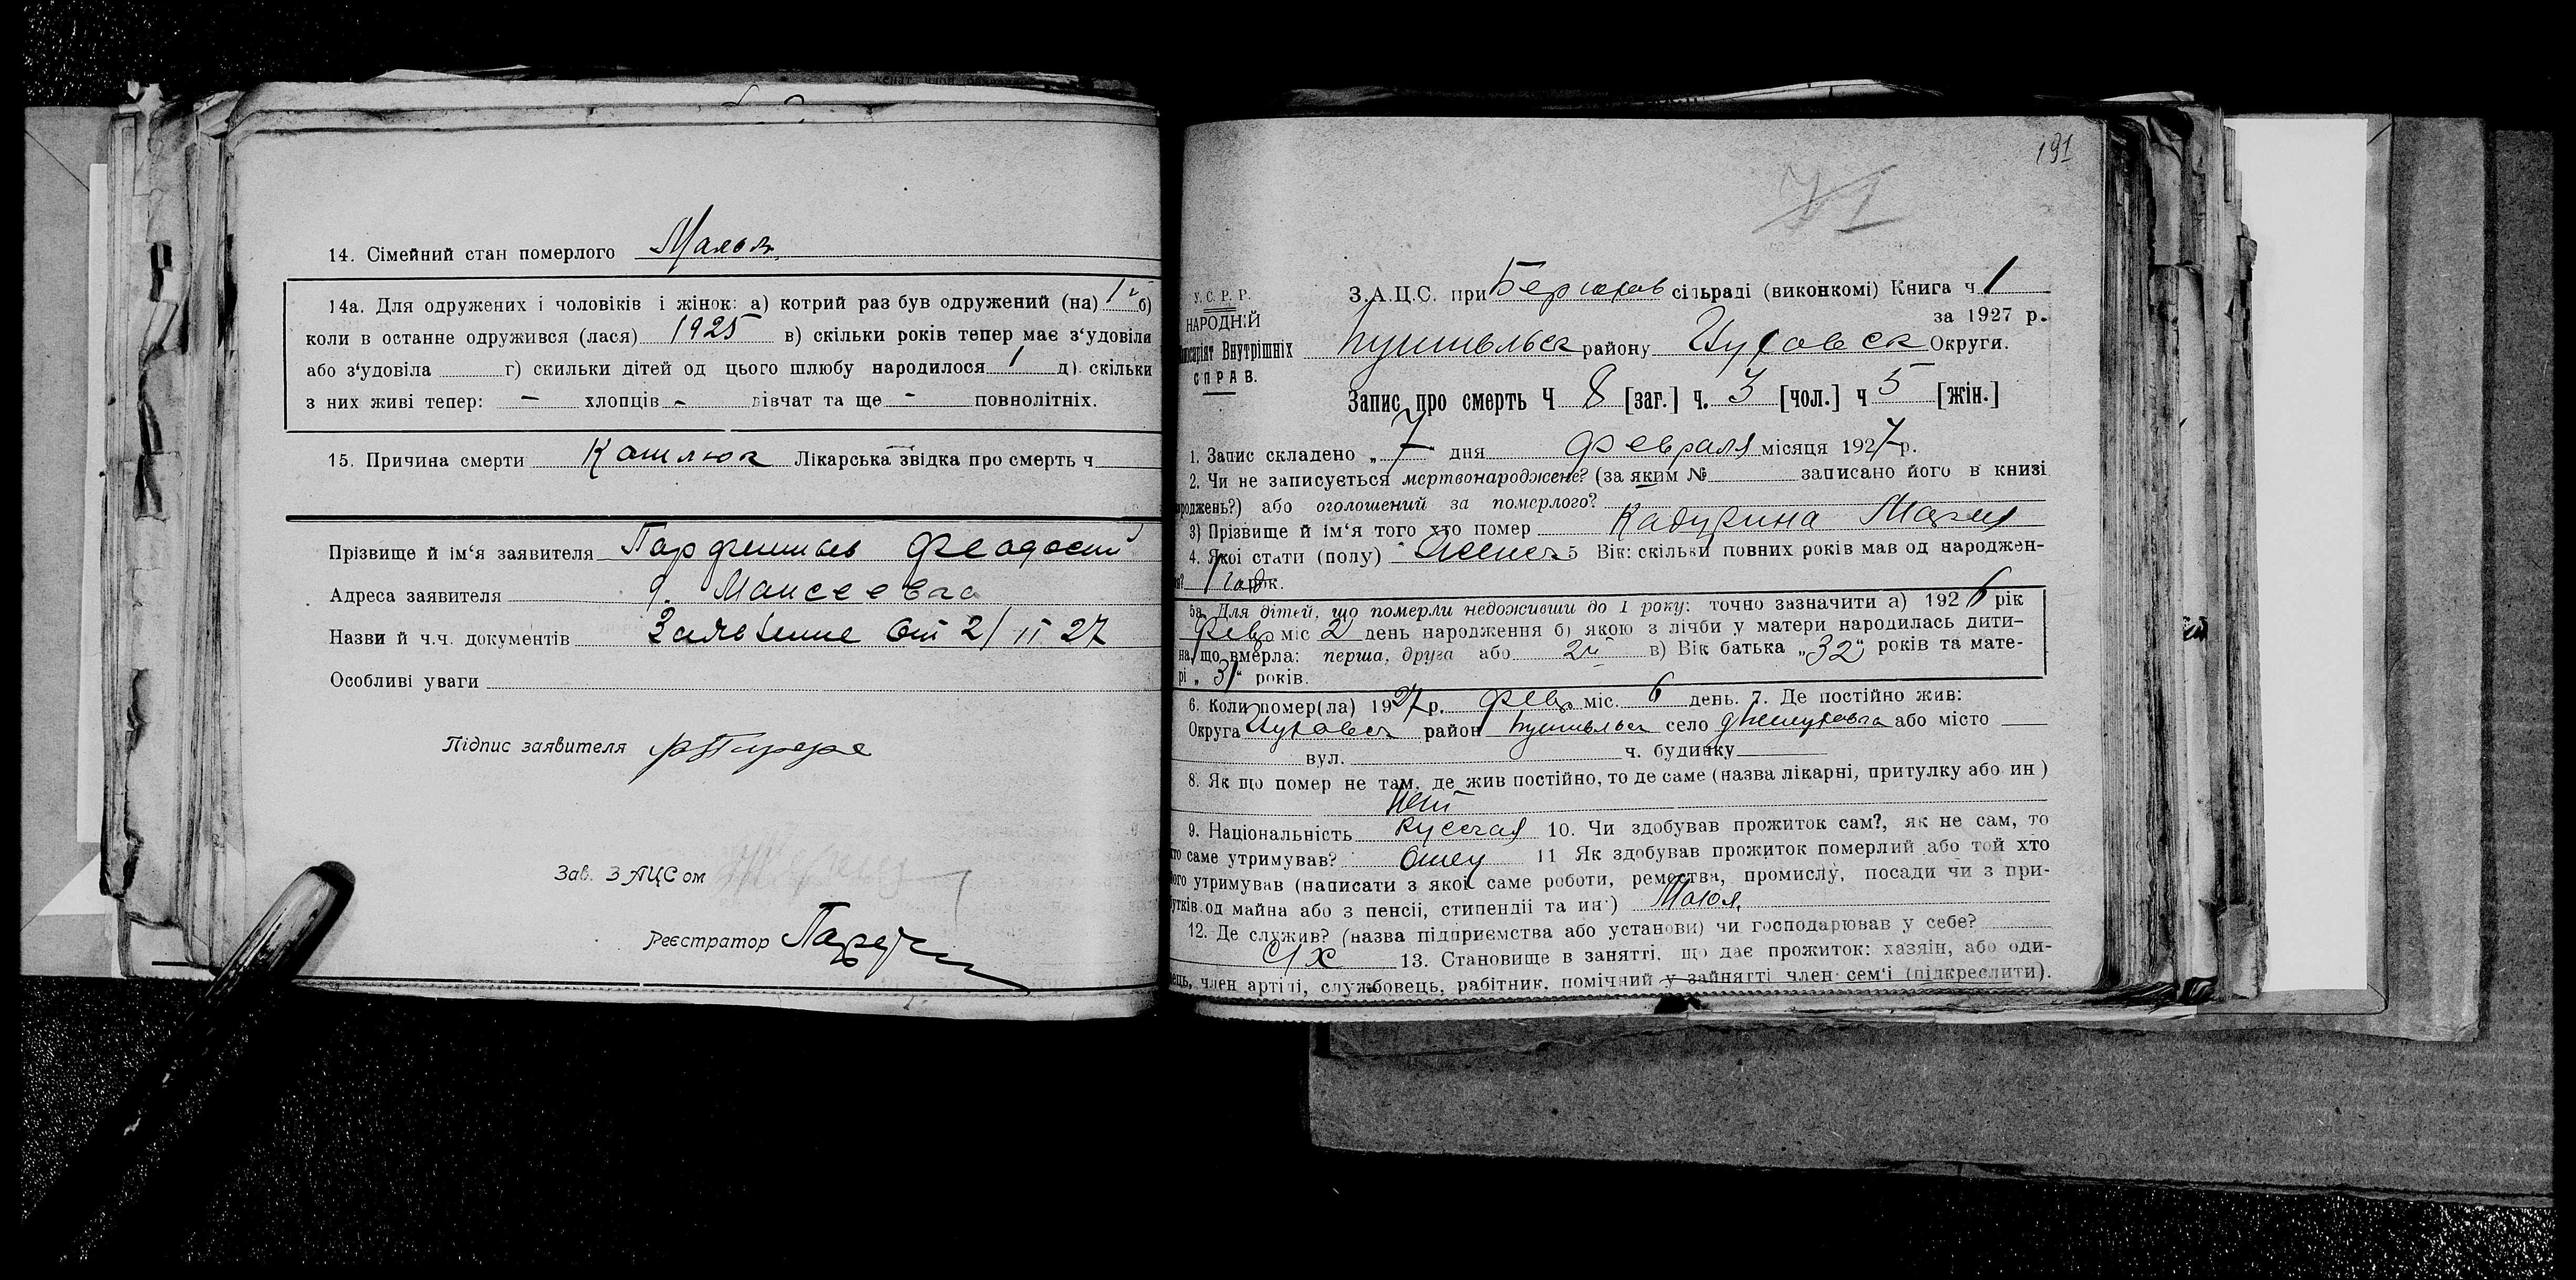 14. Сімейний стан померлого
14а. Для одружених і чоловіків і жінок: а) котрий раз був одружений (на) 1й б)
коли в останне одружився (лася) 1925 в) скільки років тепер має з‘удовіли
або з‘удовіла г) скильки дітей од цього шлюбу народилося 1 д) скільки
з них живі тепер: — хлопців - дівчат та ще - повнолітніх.
15. Причина смерти Лікарська звідка про смерть ч
Прізвище й ім‘я заявителя Феодосий
Адреса заявителя д. Моисеевка
Назви й ч.ч. документів Заявление от 2/II 27
Особливі уваги
Підпис заявителя
Зав. ЗАЦСом
Реєстратор
191
71
У. С. Р. Р.
НАРОДНІЙ
Внутрішніх
СПРАВ.
З.А.Ц.С. при Берюхов сільраді (виконкомі) Книга ч 1
за 1927 р.
Путивльск району Округи.
Запис про смерть Ч 8 [заг.] ч. 3 [чол.] ч 5 [жін.]
1. Запис складено „7 дня февраля місяця 1927 р.
2. Чи не записується мертвонароджене? (за яким № записано його в книзі
роджень?) або оголошений за померлого?
3) Прізвище й ім‘я того хто помер Кадурина Мария
4. Якої стати (полу) Женск 5 Вік: скільки повних років мав од народжен-
1 год рок.
5а. Для дітей, що померли недоживши до 1 року: точно зазначити а) 1926 рік
Февр міс 2 день народження б) якою з лічби у матери народилась дити-
на, що вмерла: перша, друга або 2й в) Вік батька „32“ років та мате-
рі „31“ років.
6. Коли помер(ла) 1927 р. февр міс. 6 день. 7. Де постійно жив:
Округа район Путивльск село або місто
вул. ч. будинку
8. Як що помер не там, де жив постійно, то де саме (назва лікарні, притулку або ин )
Нет
9. Національність Русская 10. Чи здобував прожиток сам?, як не сам, то
то саме утримував? Отец 11 Як здобував прожиток померлий або той хто
ого утримував (написати з якої саме роботи, ремества, промислу, посади чи з при-
утків од майна або з пенсії, стипендії та ин )
12. Де служив? (назва підприємства або установи) чи господарював у себе?
С/Х 13. Становище в занятті, що дає прожиток: хазяін, або оди-
ець, член артілі, службовець, рабітник, помічний у зайнятті член сем‘і (підкреслити).